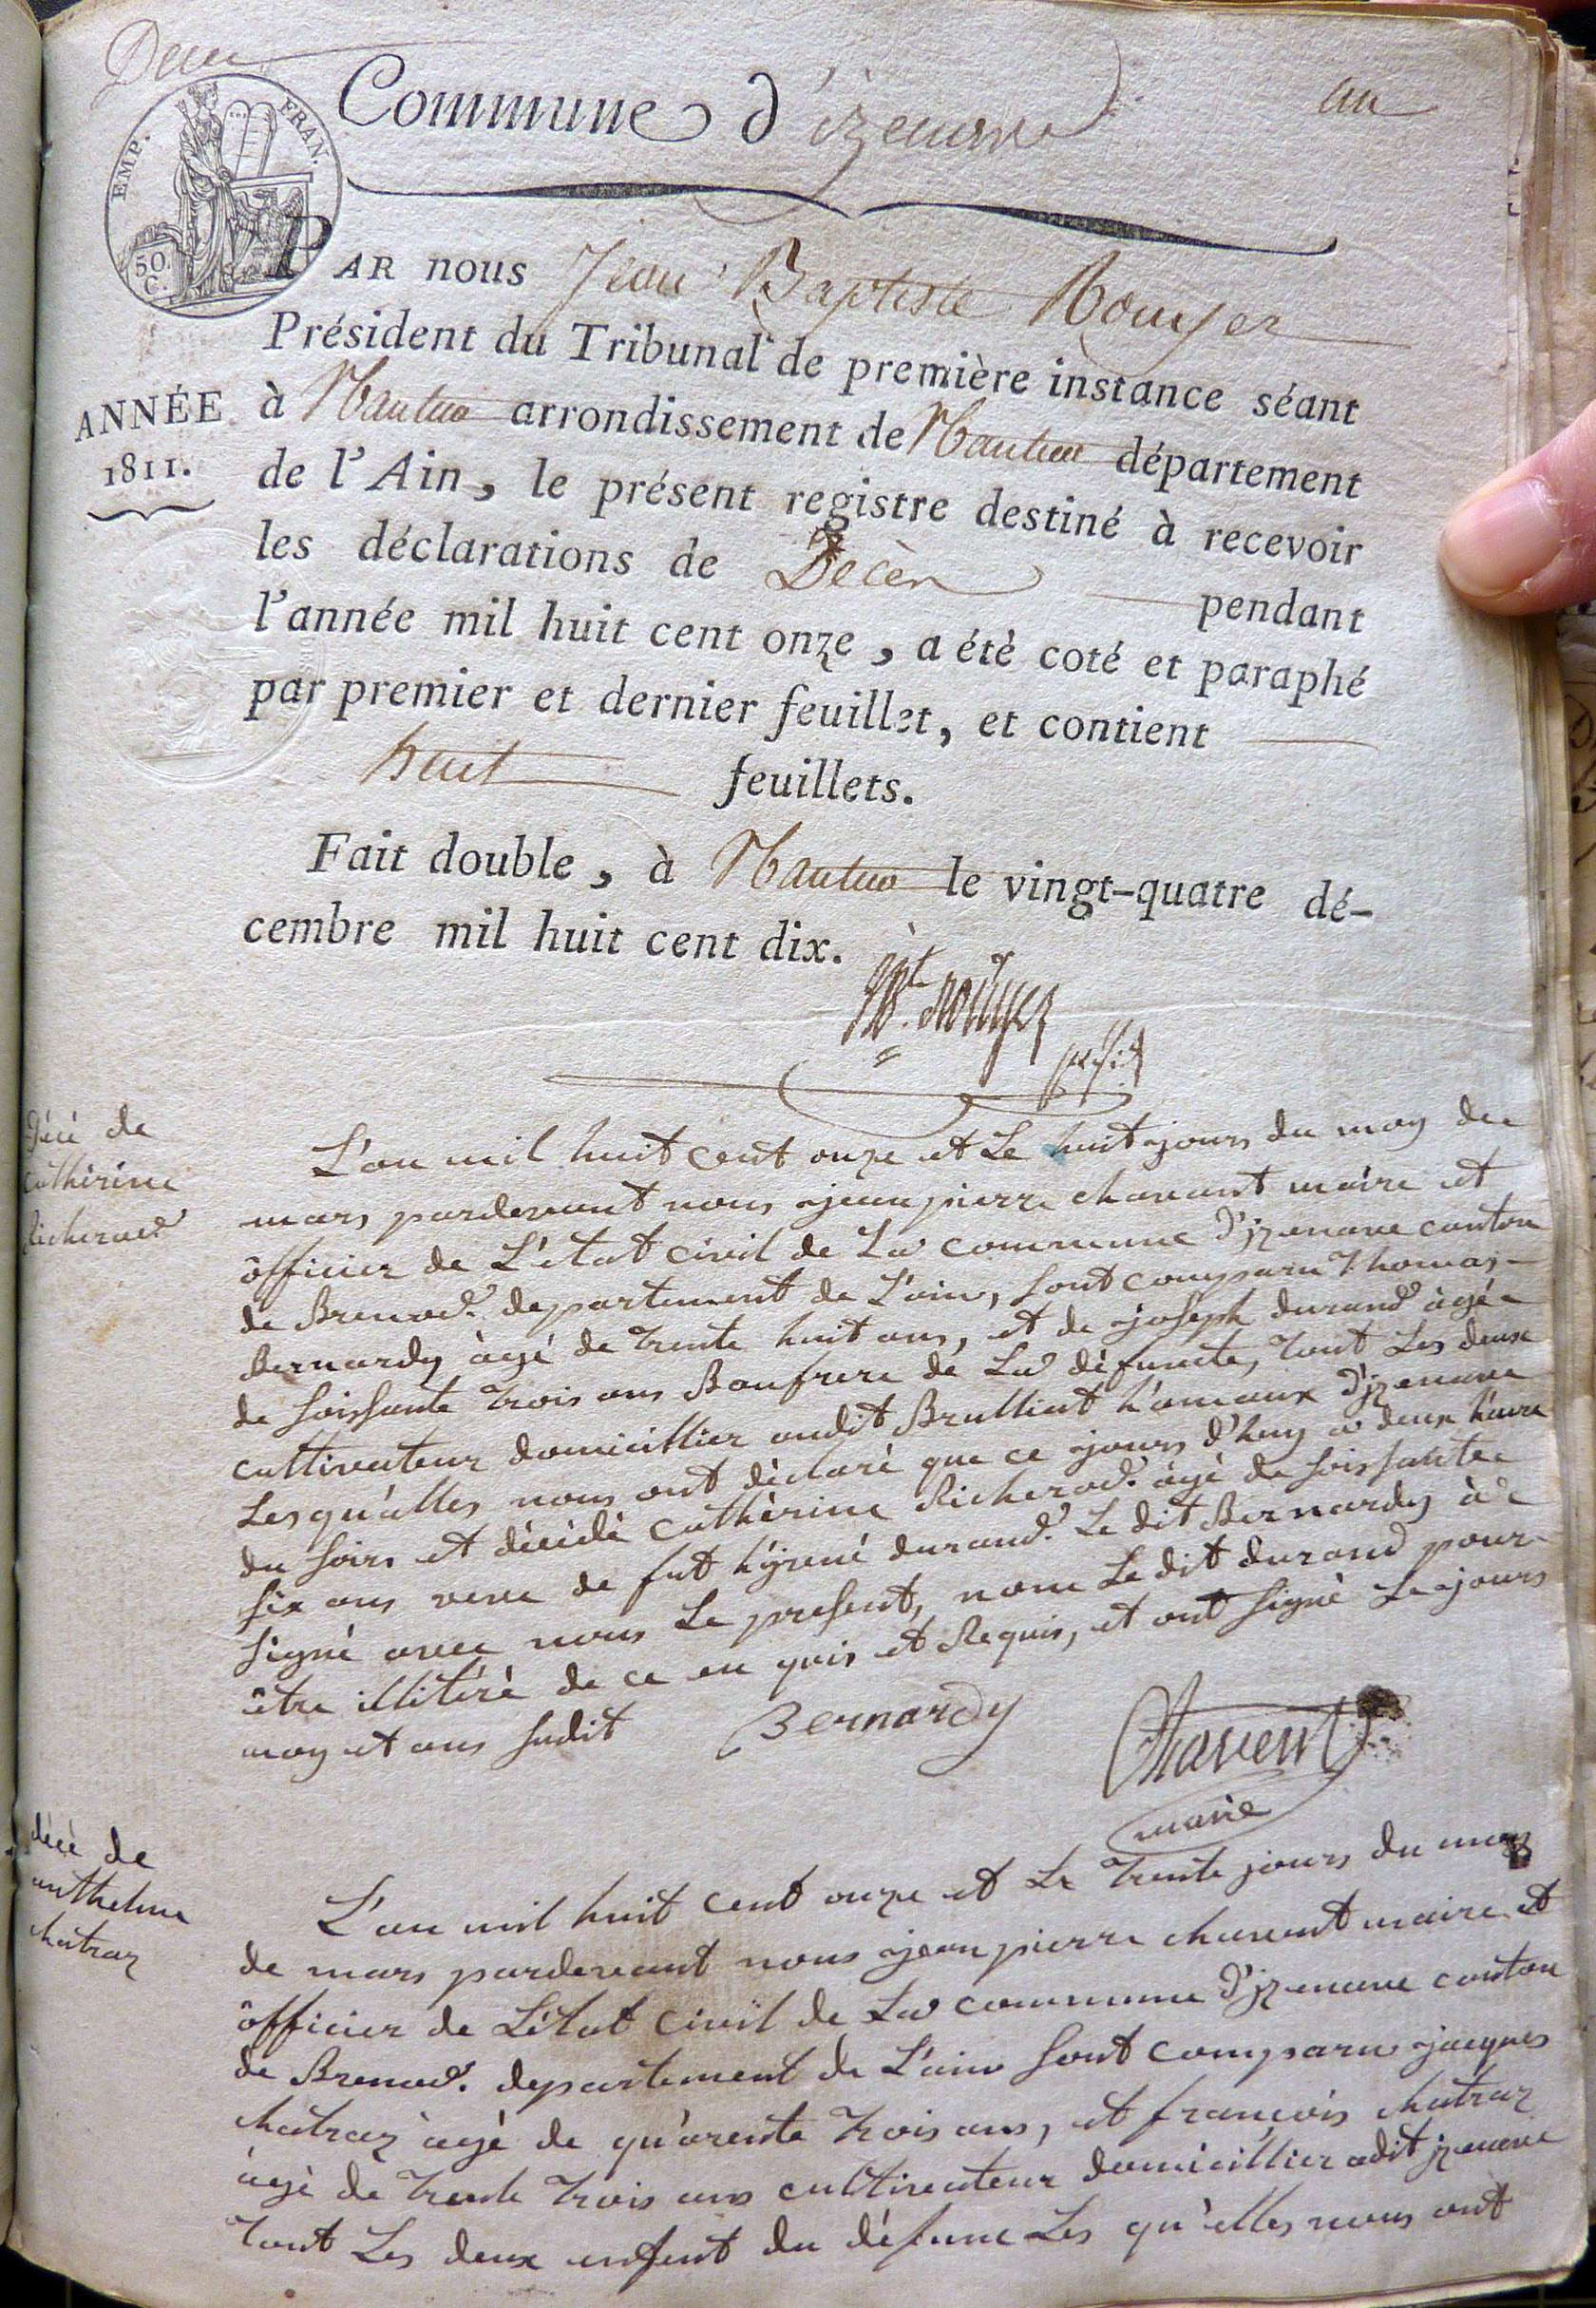 Commune d'izenave
un
EMP. FRAN.
50. C.
PAR nous Jean Baptiste Rouyer
Président du Tribunal de première instance séant
à Nantua arrondissement de Nantua département
de l'Ain, le présent registre destiné à recevoir
les déclarations de Décès pendant
l'année mil huit cent onze, a été coté et paraphé
par premier et dernier feuillet, et contient
huit feuillets.
ANNÉE
1811.
Fait double, à Nantua le vingt-quatre dé-
cembre mil huit cent dix.
JBte. Rouyer
présid
Décè de
cathérine
Richerod
L'an mil huit cent onze et Le huit jours du moy de
mars pardevant nous jean pierre chavant maire et
öfficier de L'état civil de La commune d'jzenave canton
de Brenod. departement de L'ain, sont comparu Thomas
Bernardy àgé de trente huit ans, et de joseph durand àgé
de soissante trois ans Baufrere de La défuncte, tout Les deux
cultivateur domicillier audit Brulliat h'amaux d'jzenave
Lesqu'elles nous ont déclaré que ce jours d'huy a deux h'eure
du soirs et décédé cathérine Richerod. àgé de soissante
six ans veve de fut h'yrené durand. Le dit Bernardy à
signé avec nous Le present, nom Le dit durand pour
être illitéré de ce en quis et Requis, et ont signé Le jours
moy et ans sudit
Bernardy
Chavent
maire
décè de
anthelme
chatraz
L'an mil huit cent onze et Le trente jours du moy
de mars pardevant nous jean pierre chavent maire et
öfficier de L'état civil de La commune d'jzenave canton
de Brenod. departement de L'ain sont comparu jacques
chatraz àgé de qu'arente trois ans, et françois chatraz
àgé de trente trois ans cultivateur domicillier adit jzenave
tout Les deux enfent du défunc Les qu'elles nous ont